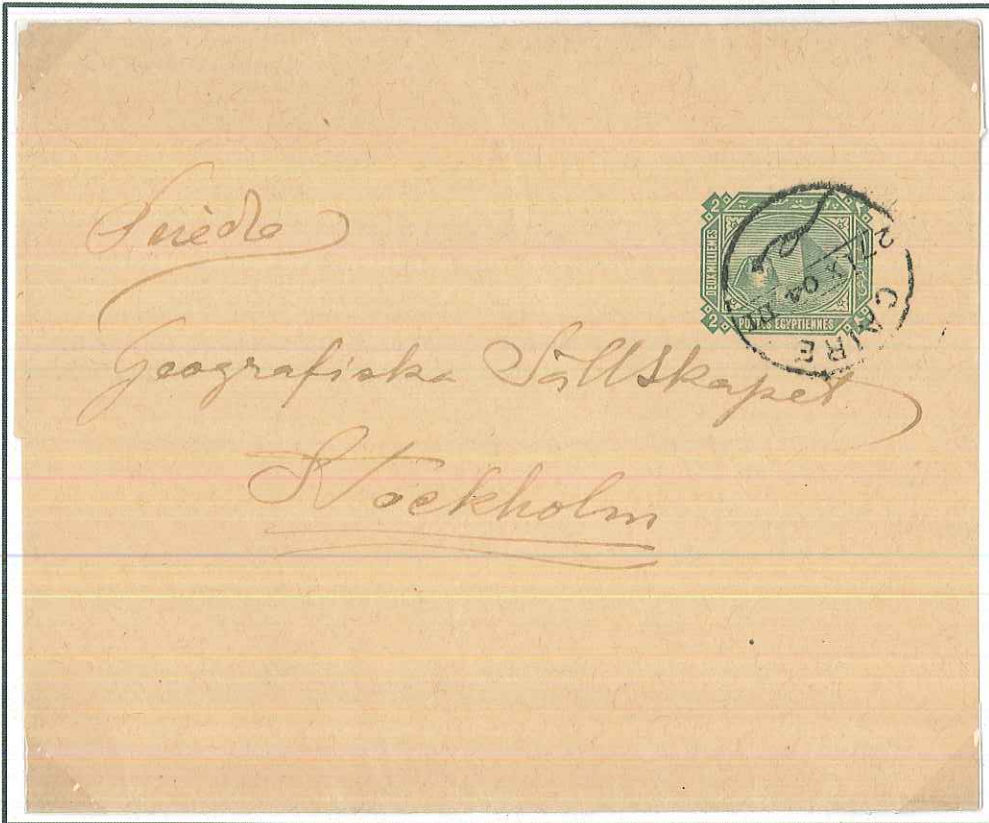 Suède
Geografiska Sällskapet
Stockholm
2
2
DEUX MILLIEMES
2
POSTES EGYPTIENNES
CAIRE